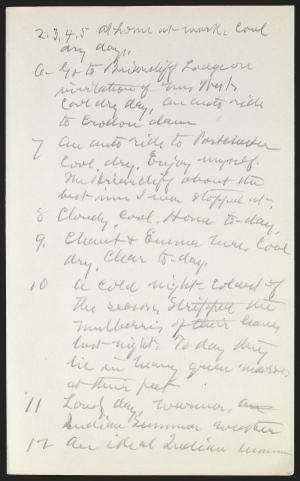 2.3.4.5 At home at work. Cool
dry days.
6- Go to Briarcliff Lodge on
invitation of Mrs West.
Cool dry day, An auto ride
to Croton dam
7 An auto ride to Portchester
Cool, dry. Enjoy myself.
The Briarcliff about the
best inn I ever stopped at.
8 Cloudy, Cool. Home to-day.
9. & Emma here. Cool
dry. Clear to-day.
10 A cold night - coldest of
the season, Stripped the
mulberries of their leaves
last night. To-day they
lie in heavy green masses
at their feet
11 Lovely day, warmer, an
Indian Summer weather
12 An ideal Indian summer